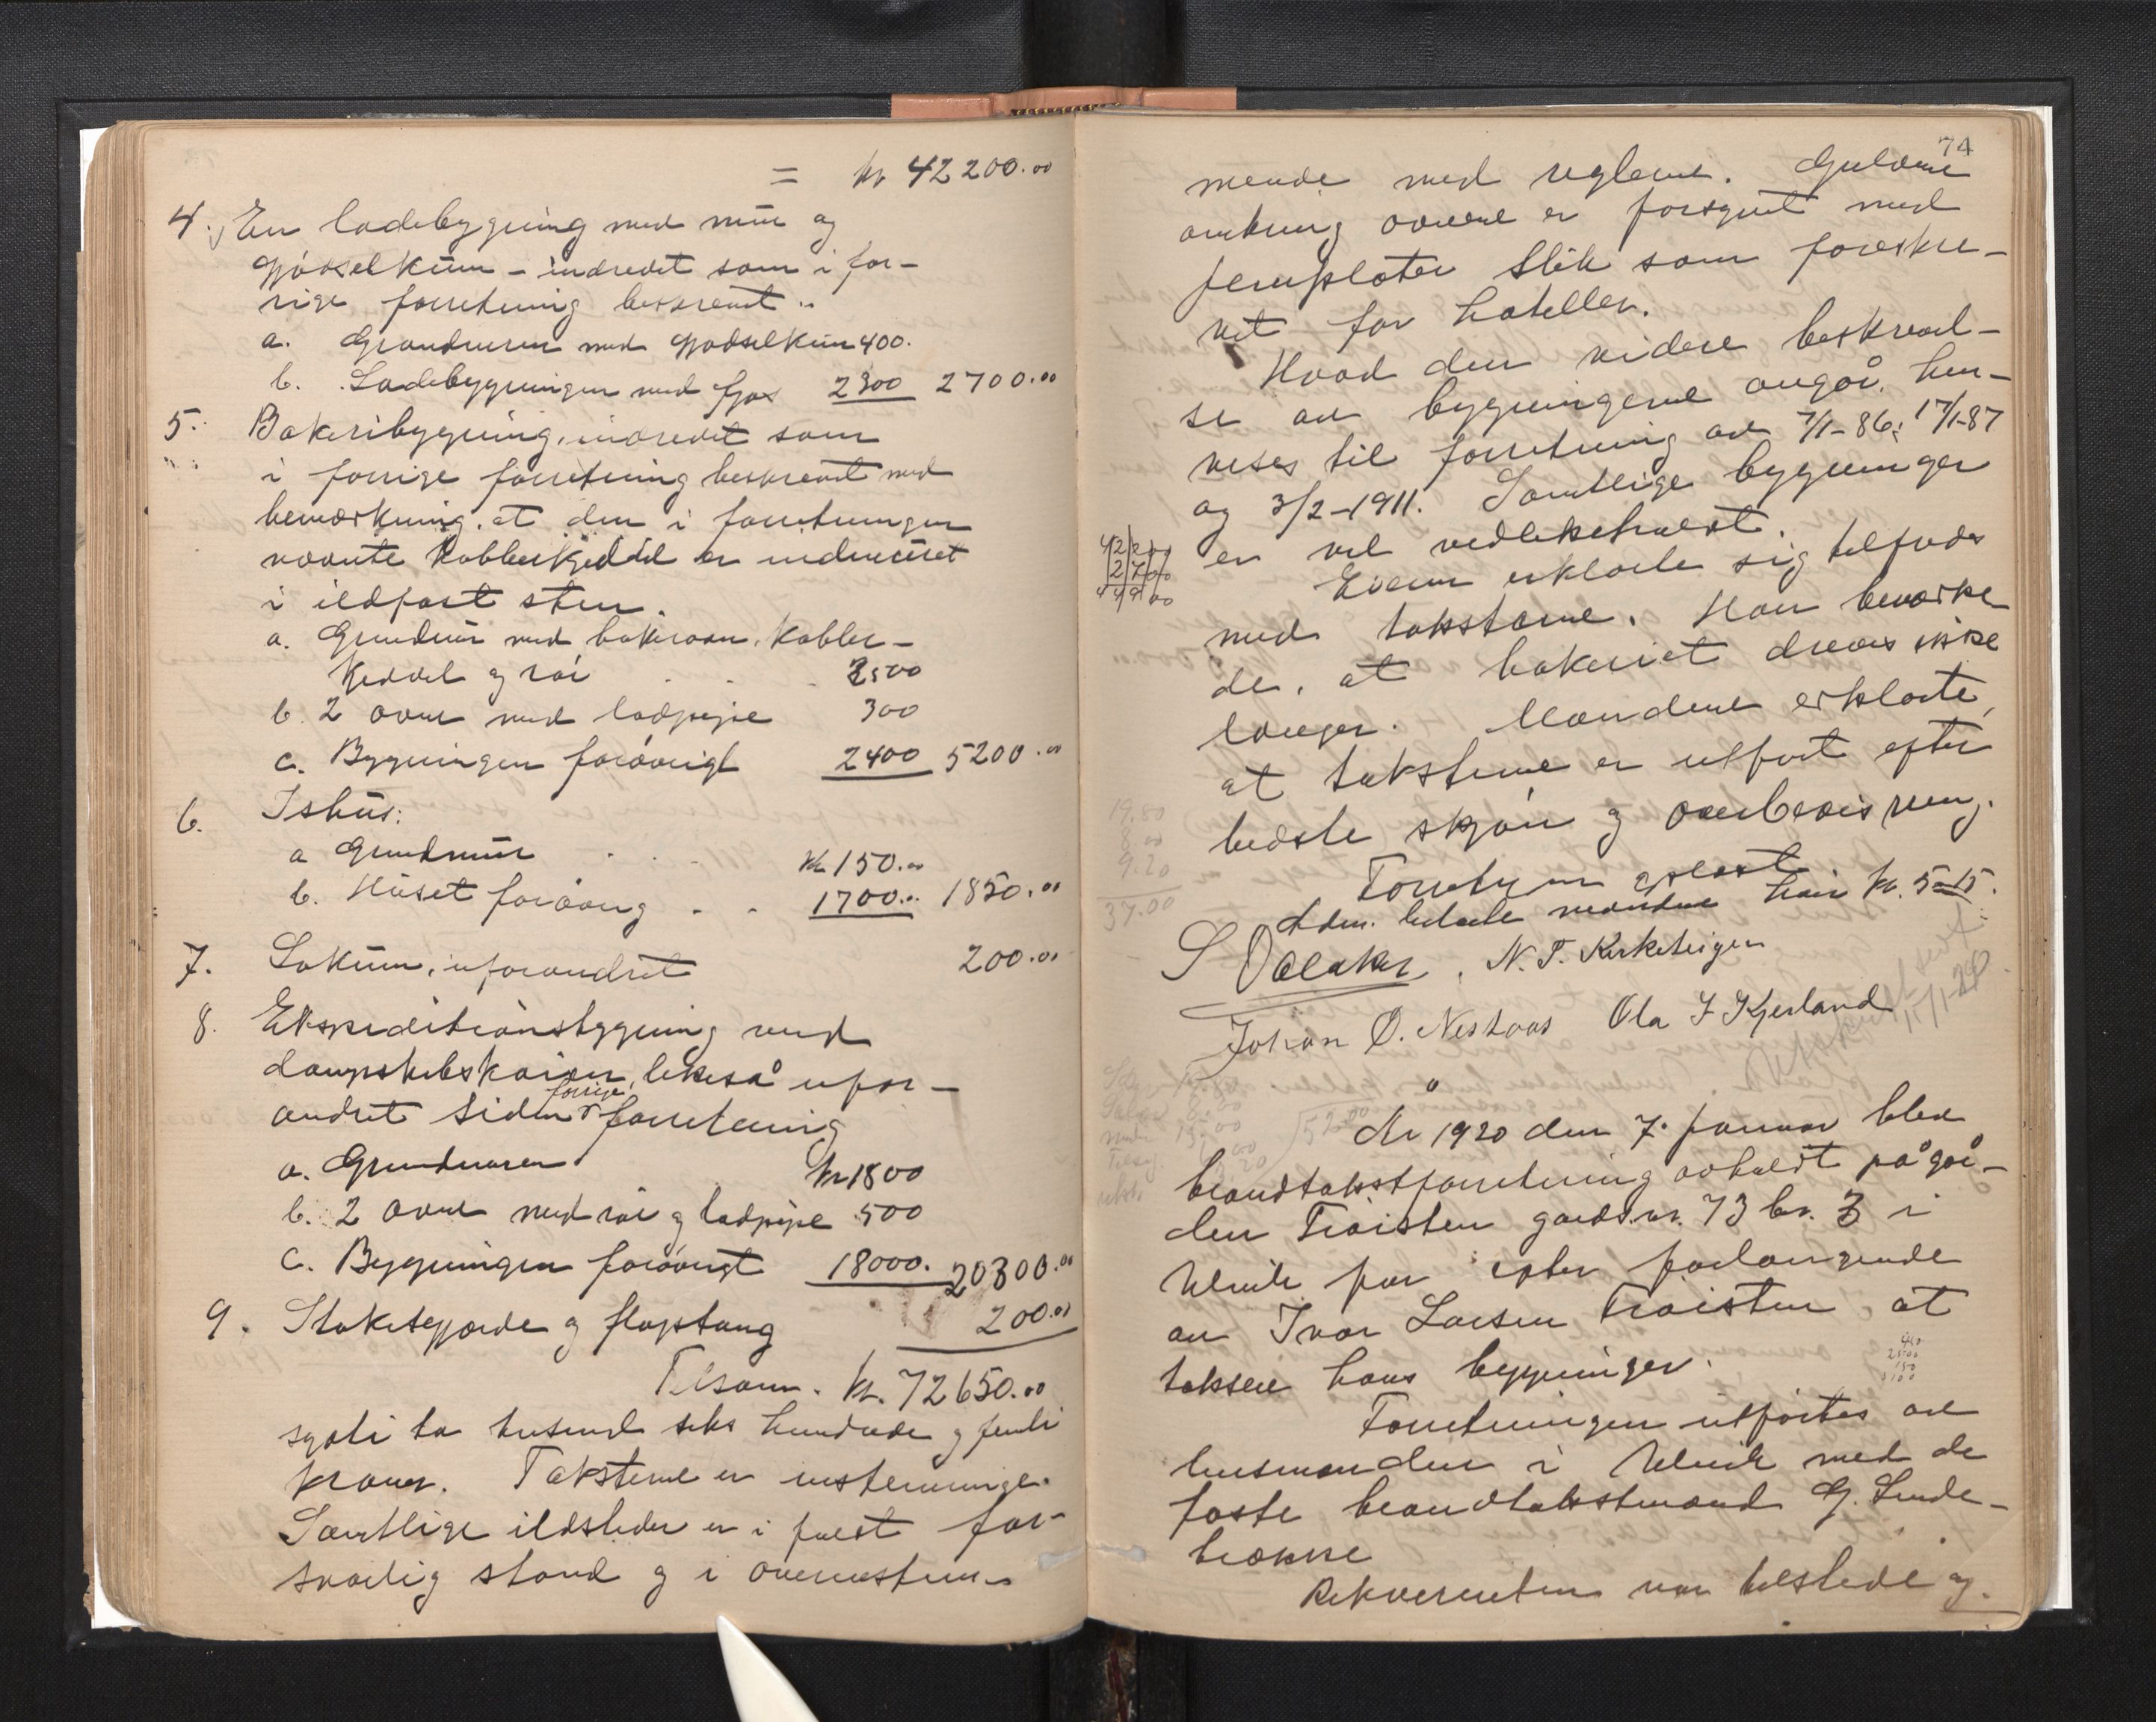 = kr 42200.00
4. En ladebygning med mur og
gjödselkum - indredet som i for-
rige forretning beskrevet.
a. Grundmuren med gjödselkum 400.
b. Ladebygningen med fjøs 2300 2700.00
5. Bakeribygning, indredet som
i forrige forretning beskrevet med
bemærkning, at den i forretningen
nævnte kobberkjedel er indmuret
i ildfast sten.
a. Grundmur med bakerovn, kobber-
kjeddel og rör 2500
b. 2 ovne med ladpipe 300
c. Bygningen forövrigt 2400 5200.00
6. Ishus:
a Grundmur kr 150.00
b. Huset forövrig 1700.00 1850.00
7. Lokum, uforandret 200.00
8. Ekspeditionsbygning ved
dampskibskaien, likeså ufor-
andret siden forrige forretning
a. Grundmuren kr 1800
b. 2 ovne med rör og ladpipe 500
c. Bygningen forövrigt 18000. 20300.00
9. Stakitgjærde og flagstang 200.00
Tilsam. kr. 72650.00
sytti to tusend seks hundrede og femti
kroner. Taksterne er enstemmige.
Samtlige ildsteder er i fuldt for-
svarlig stand og i overenstem-
74
mende med reglerne. Gulvene
omkring ovnene er forsynet med
jernplater slik som foreskre-
vet for hoteller.
Hvad den videre beskrivel-
se av bygningerne angår, hen-
vises til forretning av 7/1-86; 17/1-87
og 3/2-1911. Samtlige bygninger
er vel vedlikeholdt.
42200
2700
44900
Eieren erklærte sig tilfreds
med taksterne. Han bemerke
de, at bakeriet dreves ikke
længer. - Mændene erklærte,
at taksterne er utfört efter
bedste skjön og overbevisning.
19.80
8.00
9.20
37.00
Forretningen oplæst
Adm. betalte mændene hver kr. 5.15.
S Dalaker, N. T. Kirketeigen
Johan O. Neshaas Ola I Kjerland
Utskrift sendt
15/1-20
År 1920 den 7. januar blev
brandtakstforretning avholdt på går-
den Tröisten gaardsnr. 73 br. 3 i
Ulvik efter forlangende
av Ivar Larsen Tröisten at
taksere hans bygninger.
Forretningen utförtes av
lensmanden i Ulvik med de
faste brandtakstmænd G. Linde-
brække
Rekvirenten var tilstede og